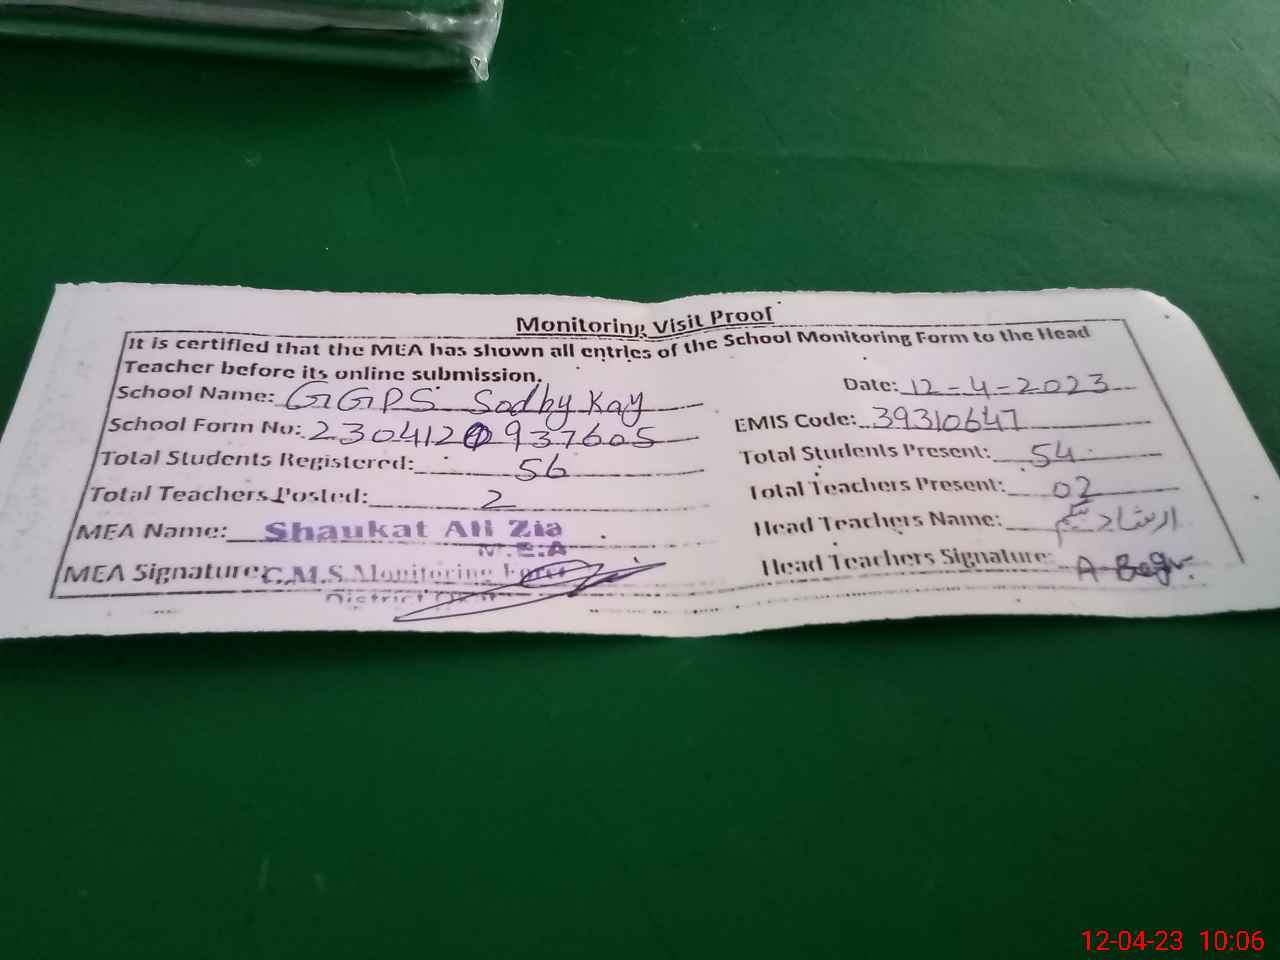 Monitoring Visit Proof
It is certified that the MEA has shown all entries of the School Monitoring Form to the Head
Teacher before its online submission.
School Name: GGPS Sodhy Kay Date: 12-4-2023
School Form No: 230412 0937605 EMIS Code: 39310647
Total Students Registered: 56 Total Students Present: 54
Total Teachers Posted: 2 Total Teachers Present: 02
MEA Name: Shaukat Ali Zia Head Teachers Name: ارشاد بیگم
M.E.A
MEA Signature: C.M.S Monitoring Force Head Teachers Signature: A Begum
District
12-04-23 10:06